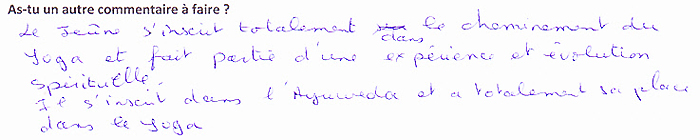 As-tu un autre commentaire à faire ?
Le Jeûne s'inscrit totalement dans le cheminement du
Yoga et fait partie d'une expérience et évolution
spirituelle.
Il s'inscrit dans l'Ayurveda et a totalement sa place
dans le Yoga